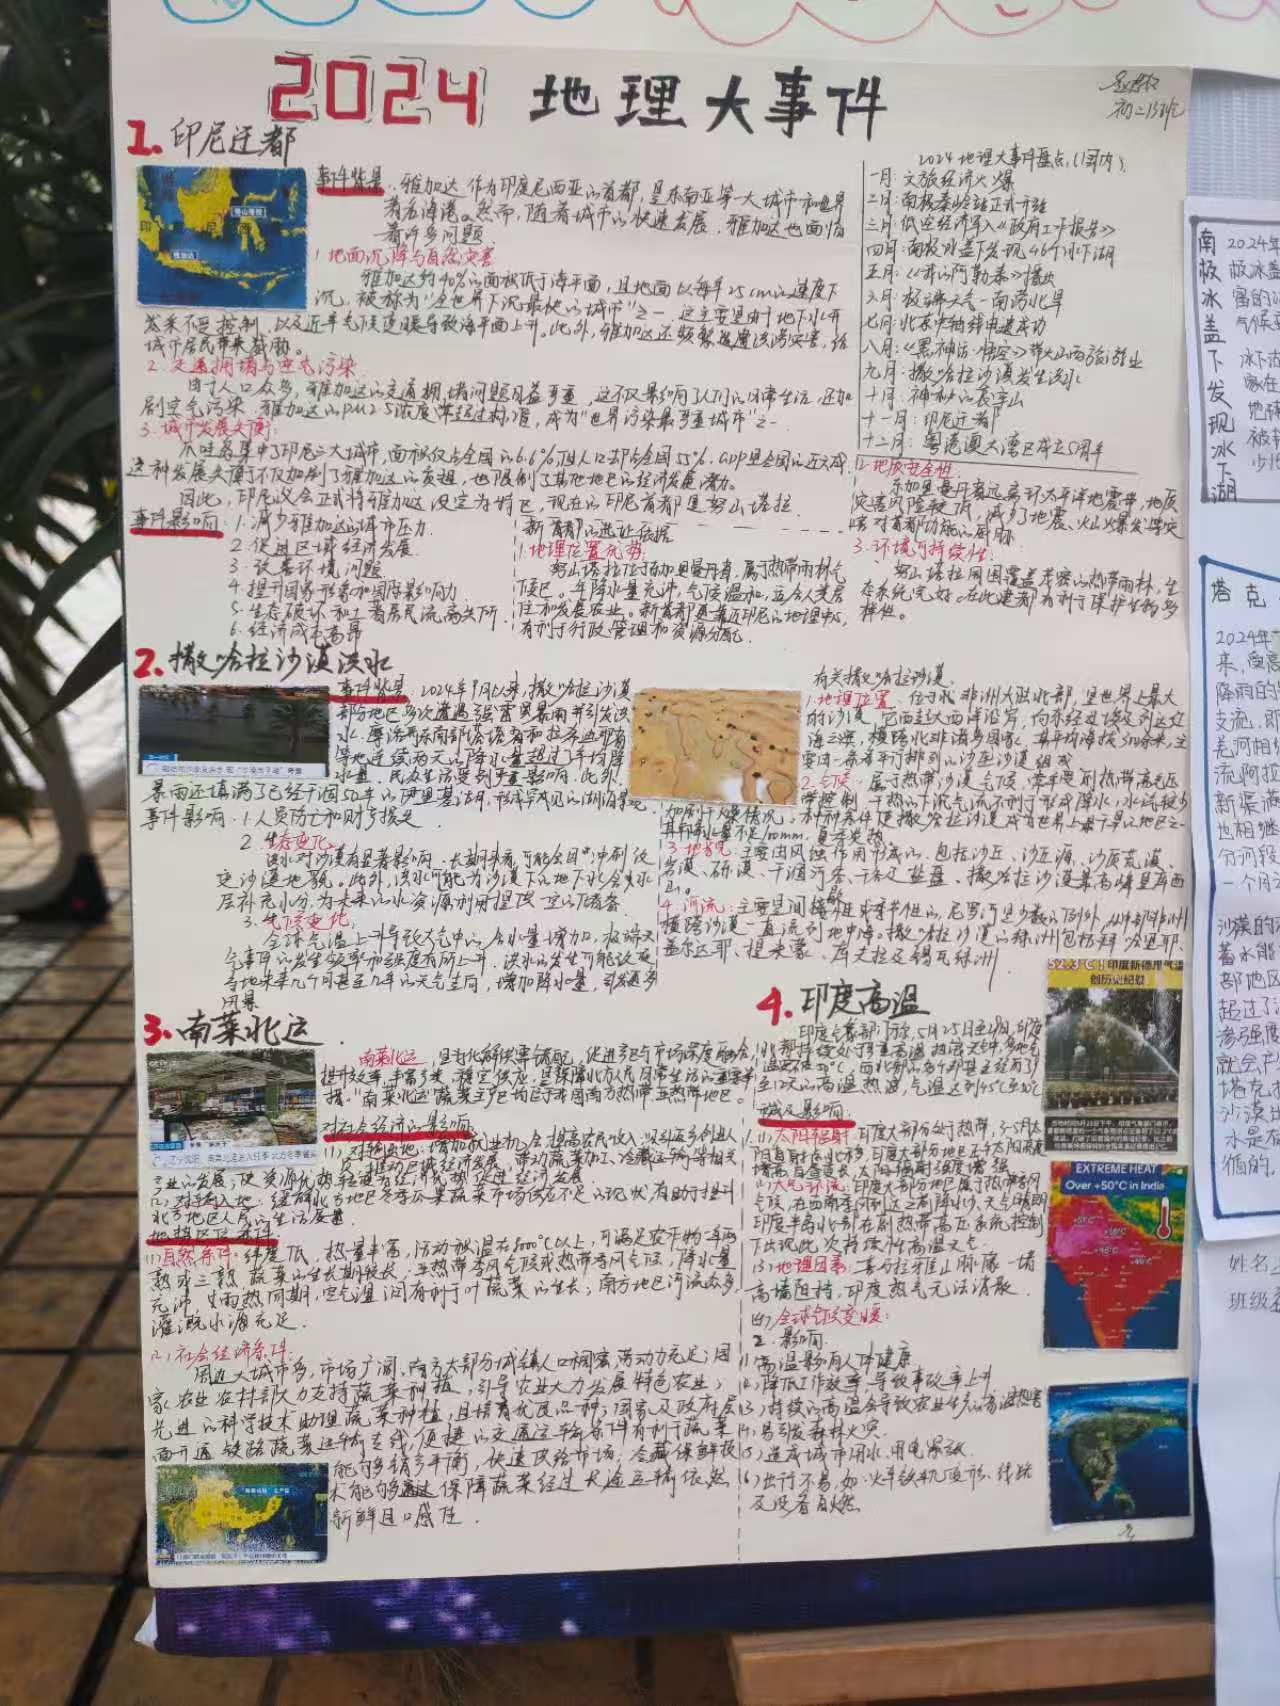 2024 地理大事件
初二15班
1. 印尼迁都
事件背景:雅加达作为印度尼西亚的首都,是东南亚第一大城市和世界
著名海港。然而,随着城市的快速发展,雅加达也面临
着许多问题
1.地面沉降与自然灾害
雅加达约40%的面积低于海平面,且地面以每年25cm的速度下
沉,被称为“全世界下沉最快的城市”之一,这主要是由于地下水开
发不受控制,以及近年气候变暖导致海平面上升。此外,雅加达还频繁遭遇洪涝灾害,给
城市居民带来威胁。
2.交通拥堵与空气污染
由于人口众多,雅加达的交通拥堵问题日益严重,这不仅影响了人们的日常生活,还加
剧空气污染,雅加达的PM2.5浓度常超过标准,成为“世界污染最严重城市”之一
3.城市发展失衡
爪哇岛集中了印尼三大城市,面积仅占全国的6.6%,但人口却占全国55%,GDP是全国的近六成,
这种发展失衡不仅加剧了雅加达的负担,也限制了其他地区的经济发展潜力。
因此,印尼议会正式将雅加达设定为特区,现在的印尼首都是努山塔拉
事件影响:1.减少雅加达的城市压力
2.促进区域经济发展
3.改善环境问题
4.提升国家形象和国际影响力
5.生态破坏和土著居民流离失所
6.经济成本高昂
新首都的选址依据
1.地理位置优势:
努山塔拉位于东加里曼丹省,属于热带雨林气
候区。年降水量充沛,气候温和,适合人类居
住和发展农业。新首都更靠近印尼的地理中心,
有利于行政管理和资源分配。
2024地理大事件盘点(国内)
一月:文旅经济火爆
二月:南极秦岭站正式开站
三月:低空经济写入《政府工作报告》
四月:南极冰盖下发现46个冰下湖
五月:《我的阿勒泰》播出
六月:极端天气-南涝北旱
七月:北京中轴线申遗成功
八月:《黑神话·悟空》带火山西旅游业
九月:撒哈拉沙漠发生洪水
十月:神秘的长字山
十一月:印尼迁都
十二月:粤港澳大湾区成立5周年
2.地质安全性:
东加里曼丹省远离环太平洋地震带,地质
灾害风险较低,减少了地震、火山爆发等灾
害对首都功能的威胁
3.环境可持续性:
努山塔拉周围覆盖茂密的热带雨林,生
态系统完好。在此建都有利于保护生物多
样性。
2. 撒哈拉沙漠洪水
事件背景:2024年9月以来,撒哈拉沙漠
部分地区多次遭遇强雷风暴雨并引发洪
水。摩洛哥东南部塔塔省和拉希迪耶省
等地连续两天的降水量超过了年均降
水量,民众生活受到严重影响。此外,
暴雨还填满了已经干涸50年的伊里基湖,形成罕见的湖泊景观
事件影响:1.人员伤亡和财产损失
2.生态变化
洪水对沙漠有显著影响,长期来看,可能会因冲刷改
变沙漠地貌。此外,洪水可能为沙漠下的地下水含水
层补充水分,为未来的水资源利用提供一定的储备
3.气候变化
全球气温上升导致大气中的含水量增加,极端天
气事件的发生频率和强度有所上升。洪水的发生可能改变
当地未来几个月甚至几年的天气走向,增加降水量,引发更多
风暴
有关撒哈拉沙漠
1.地理位置:位于北非洲大陆北部,是世界上最大
的沙漠。它西起大西洋沿岸,向东经过埃及到达红
海之滨,横跨北非诸多国家。其平均海拔300余米,主
要由一系列平行排列的沙丘沙漠组成
2.气候:属于热带沙漠气候,常年受副热带高气压
带控制,干热的下沉气流不利于形成降水,水汽较少
加剧干燥情况。种种条件使撒哈拉沙漠成为世界上最干旱的地区之一
其年降水量不足100mm,夏季炎热
3.地貌:主要由风蚀作用形成的,包括沙丘、沙丘源、沙质荒漠、
岩漠、砾漠、干涸河谷、干谷近盐盘。撒哈拉沙漠最高峰是库西
山。
4.河流:主要是间接性或季节性的,尼罗河是少数的例外,从中部非洲
横跨沙漠一直流到地中海。撒哈拉沙漠的绿洲包括拜哈里耶、
盖尔达耶、提米蒙、库夫拉及锡瓦绿洲
3. 南菜北运
南菜北运,具有北解供需错配,促进产区与市场深度融合,
提升效率,丰富多样,稳定供应,是保障北方人民日常生活的重要举
措。“南菜北运”蔬菜主产区均位于我国南方热带、亚热带地区。
对社会经济的影响
(1)对输出地:增加就业机会,提高农民收入,吸引返乡创业人
员,推动区域经济发展,带动蔬菜加工、冷藏运输等相关
产业的发展;使资源优势转变为经济优势,促进经济发展。
(2)对输入地:缓解北方地区冬季瓜果蔬菜市场供应不足的现状,有助于提升
北方地区人民的生活质量
地理区位条件
(1)自然条件:纬度低,热量丰富,活动积温在8000℃以上,可满足农作物一年两
熟或三熟,蔬菜的生长期较长,亚热带季风气候或热带季风气候,降水量
充沛,生雨热同期,空气湿润有利于叶蔬菜的生长;南方地区河流众多,
灌溉水源充足。
(2)社会经济条件:
周边大城市多,市场广阔,南方大部分城镇人口稠密,劳动力充足;国
家农业农村部大力支持蔬菜种植,引导农业大力发展特色农业;
先进的科学技术助理蔬菜种植,且培育优良品种;国家及政府层
面开通铁路蔬菜运输专线,便捷的交通运输条件有利于蔬菜
能够多销多平衡,快速供给市场;冷藏保鲜技
术能够通过保障蔬菜经过长途运输依然
新鲜且口感佳。
4. 印度高温
印度气象部门称,5月25日至28日,印度
北部持续处于严重高温热浪天中,多地气
温突破50℃,西北部的部分邦甚至经历了9
至12天的高温热浪,气温达到45℃至50℃
成因及影响
(1)太阳辐射:印度大部分处于热带,3-5月太
阳直射点北移,印度大部分地区正午太阳高度
增高,白昼变长,太阳辐射强度增强
(2)大气环流:印度大部分地区属于热带季风
气候,在西南季风到达之前降水少,天气晴朗
印度半岛北部在副热带高压系统控制
下出现此次持续性高温天气
(3)地理因素:喜马拉雅山脉像一堵
高墙阻挡,印度热气无法消散
(4)全球气候变暖:
2.影响
1)高温影响人体健康
(2)降低工作效率,导致事故率上升
(3)持续的高温会导致农业生产的高温热害
(4)易引发森林火灾
(5)造成城市用水、用电紧张
(6)出行不易,如:火车铁轨变形、线路
及设备自燃
52.3℃!印度新德里气温
创历史纪录
EXTREME HEAT
Over +50°C in India
南极冰盖下发现冰下湖
2024年
塔克
2024年
姓名
班级